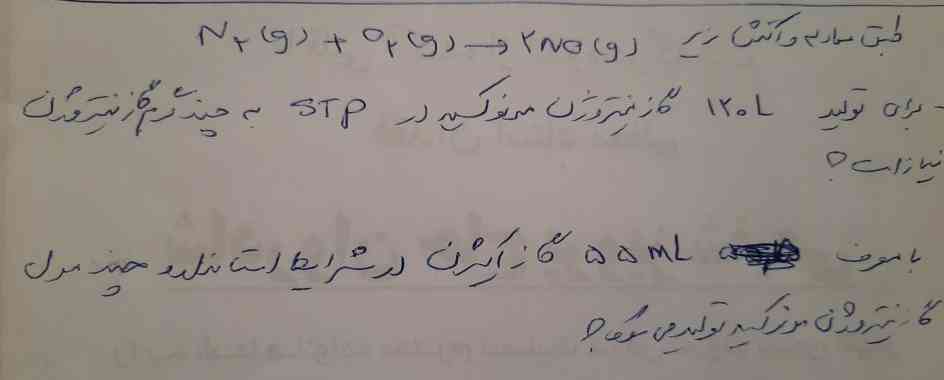 طبق معادله واکنش زیر N₂(g) + O₂(g) → 2NO(g)
- برای تولید ۱۲۰L گاز نیتروژن مونوکسید در STP به چند گرم گاز نیتروژن
نیاز است؟
با مصرف ۵۵mL گاز اکسیژن در شرایط استاندارد چند مول
گاز نیتروژن مونوکسید تولید می شود؟